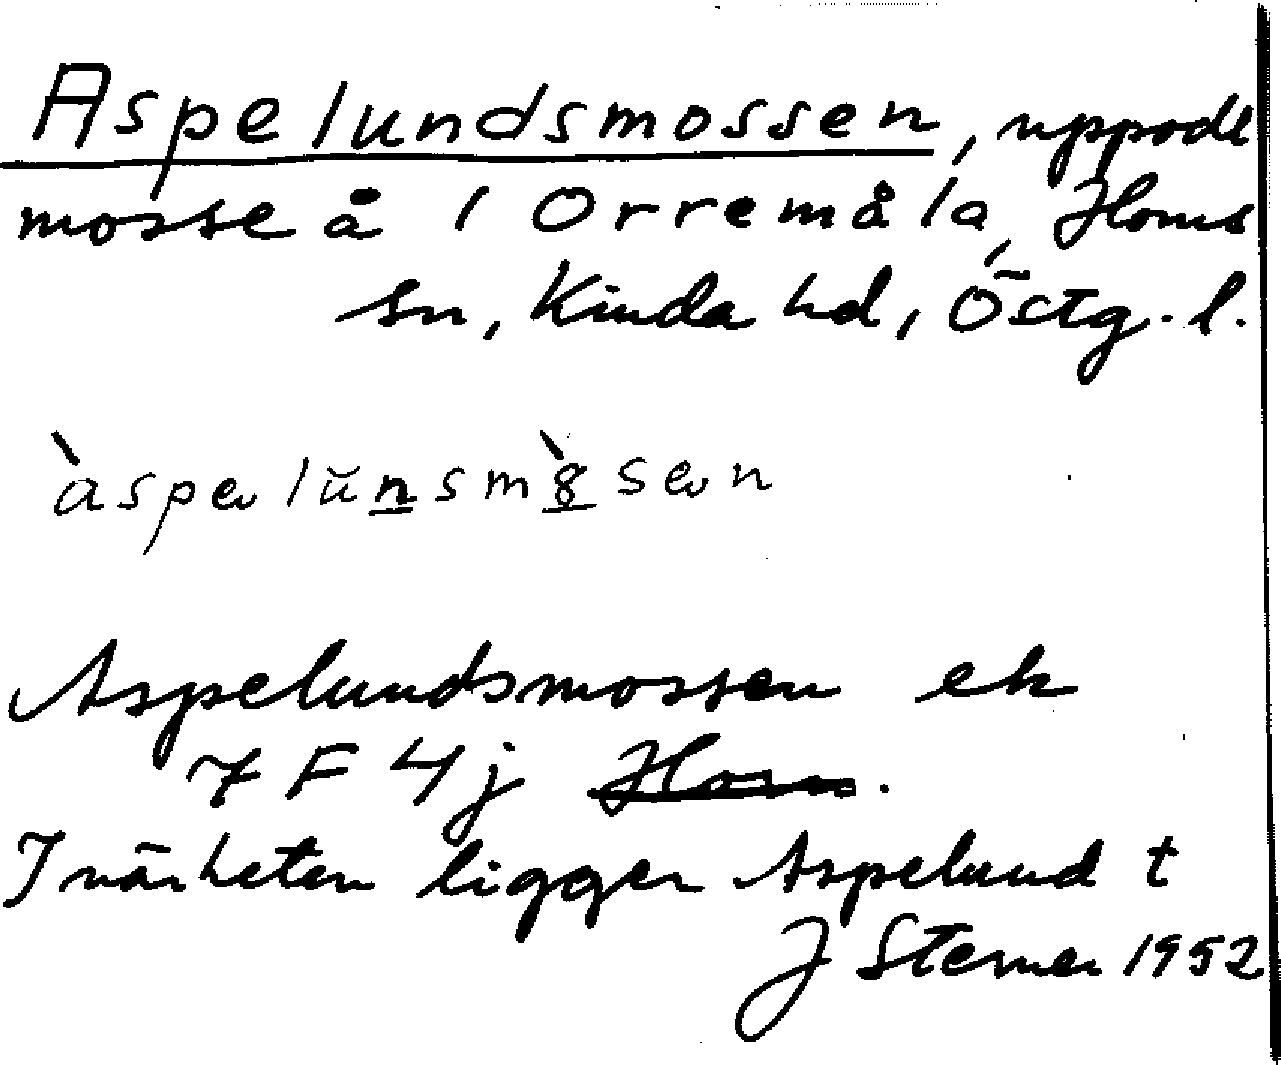 Aspelundsmossen, uppodl
mosse å 1 Orremåla, Horns
sn, Kinda hd, Östg. l.
àspelŭnsmòsen
Aspelundsmossen ek
7 F 4 j Horn.
I närheten ligger Aspelund t
J Sterner 1952